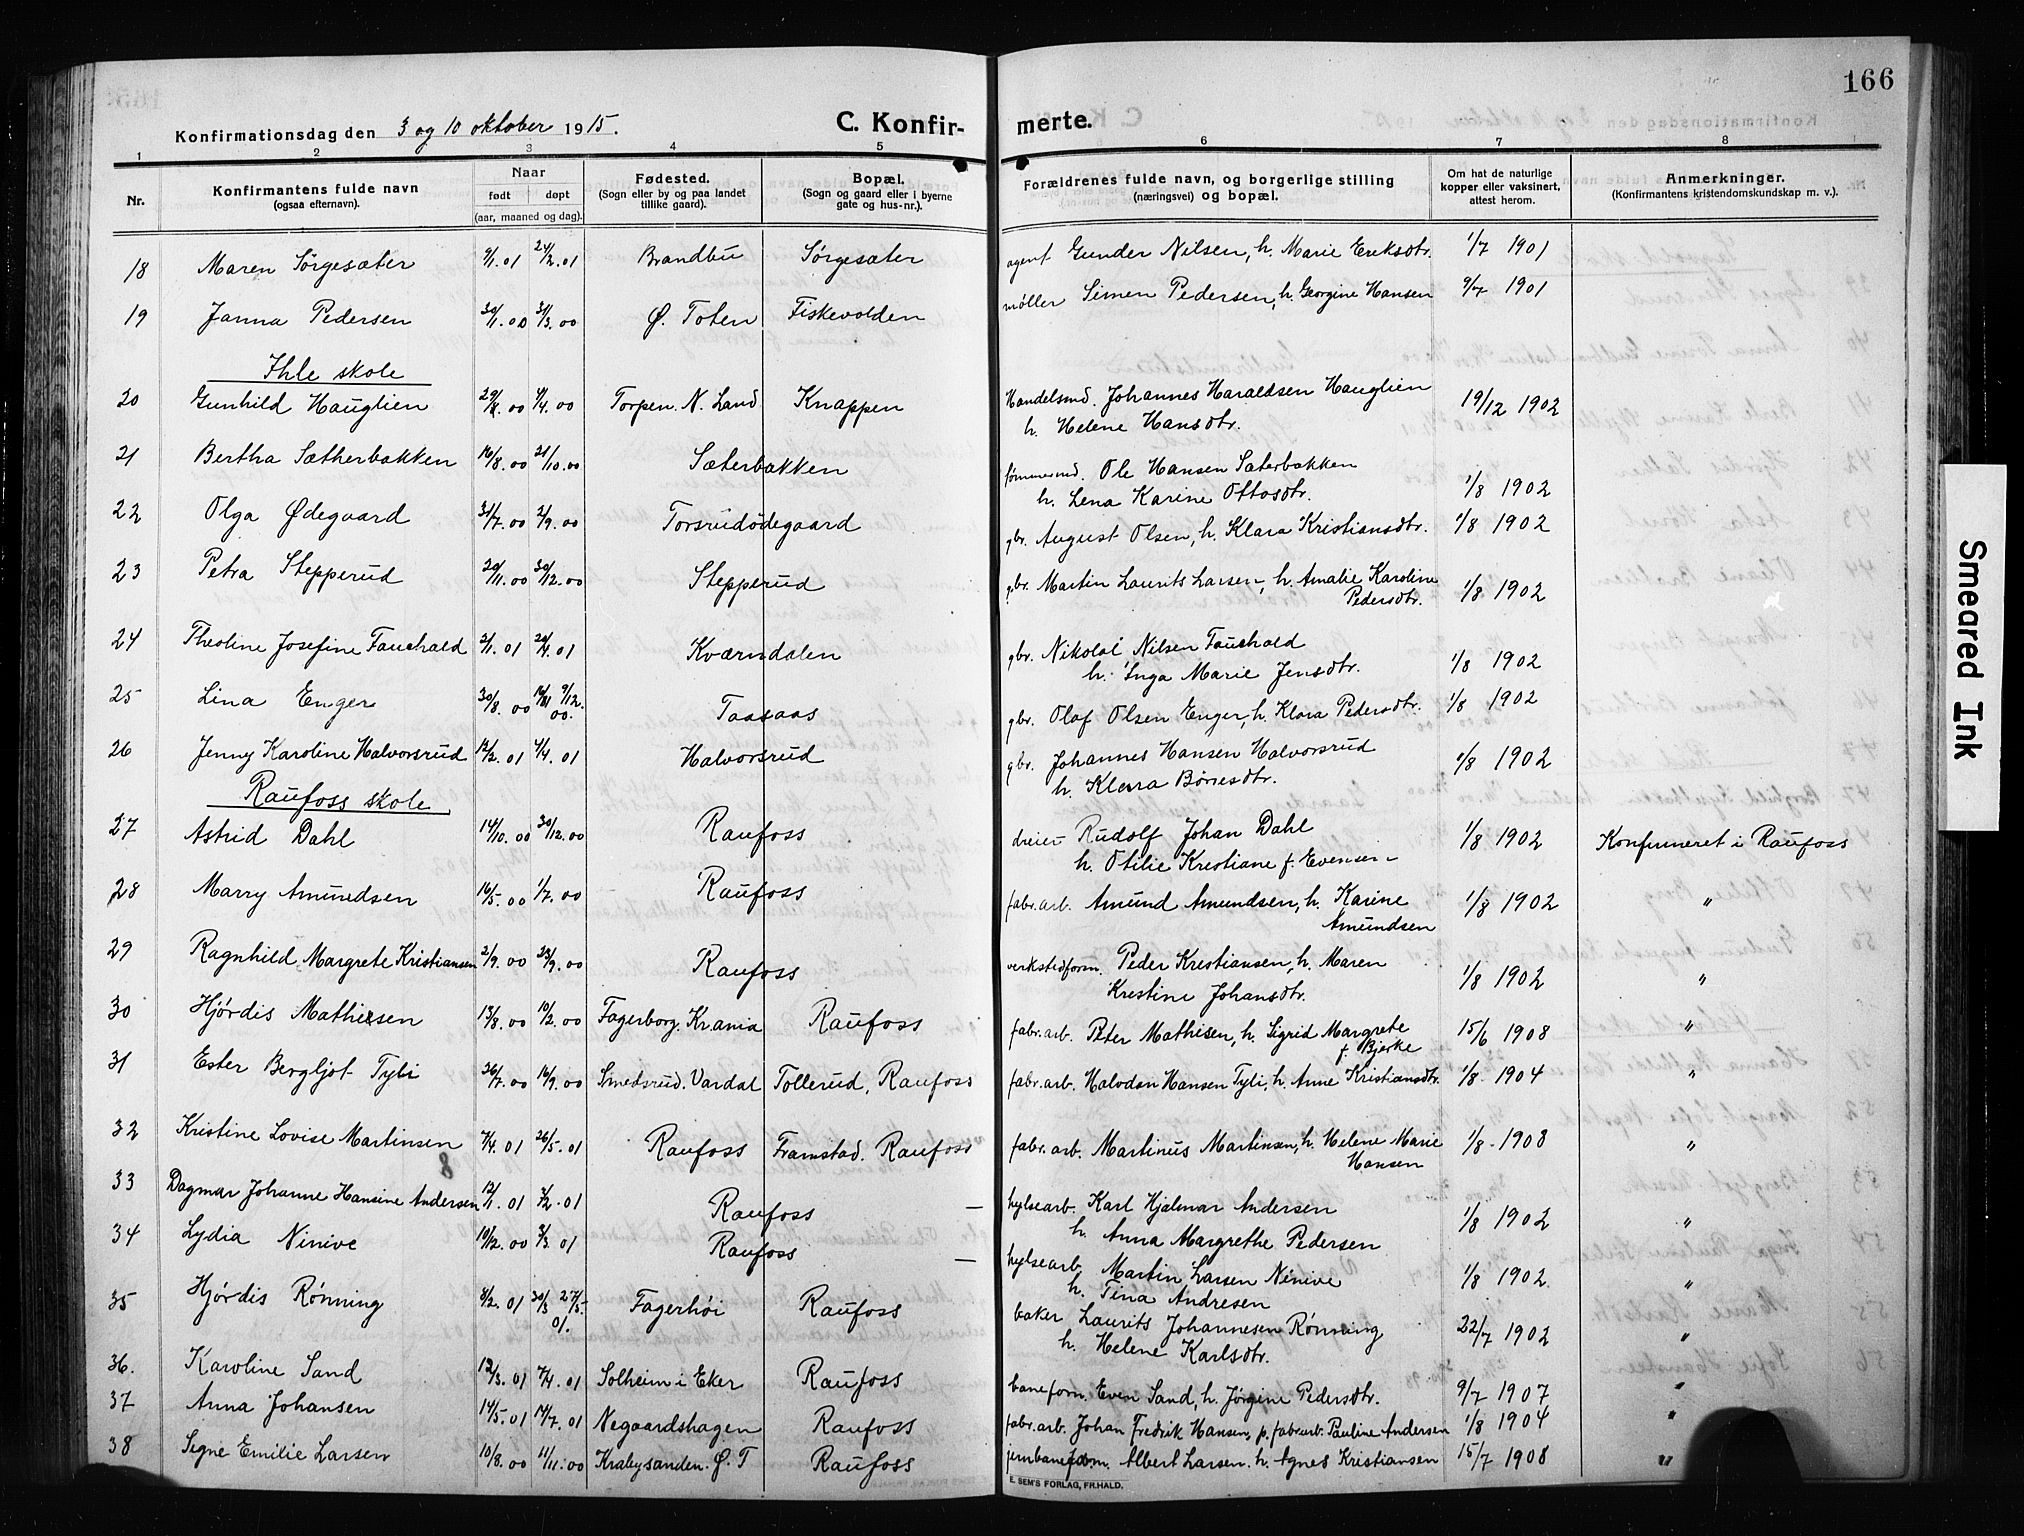 166
Konfirmationsdag den 3 og 10 oktober 1915.
C. Konfir- merte.
1 2 3 4 5 6 7 8
Nr.
Konfirmantens fulde navn (ogsaa efternavn).
Naar født døpt (aar, maaned og dag).
Fødested. (Sogn eller by og paa landet tillike gaard).
Bopæl. (Sogn og gaard eller i byerne gate og hus-nr.).
Forældrenes fulde navn, og borgerlige stilling (næringsvei) og bopæl.
Om hat de naturlige kopper eller vaksinert, attest herom.
Anmerkninger. (Konfirmantens kristendomskundskap m. v.).
18 Maren Sørgesæter 9/1.01 24/2.01 Brandbu Sørgesæter agent Gunder Nilsen, h. Marie Eriksdtr. 1/7 1901
19 Janna Pedersen 30/1.00 31/3.00 Ø. Toten Fiskevolden møller Simen Pedersen, h. Georgine Hansen 9/7 1901
Ihle skole
20 Gunhild Hauglien 4/4.00 Torpen. N. Land Knappen Handelsmd. Johannes Haraldsen Hauglien 19/12 1902
h. Helene Hansdtr.
21 Bertha Sætherbakken 16/8.00 21/10.00 Sæterbakken tømmermd. Ole Hansen Sæterbakken
h. Lena Karine Ottosdtr. 1/8 1902
22 Olga Ødegaard 31/7.00 2/9.00 Torsrudødegaard gbr. August Olsen, h. Klara Kristiansdtr. 1/8 1902
23 Petra Stepperud 20/11.00 30/12.00 Stepperud gbr. Martin Laurits Larsen, h. Amalie Karoline 1/8 1902
Pedersdtr.
24 Theoline Josefine Fauchald 2/1.01 Kværndalen gbr. Nikolai Nilsen Fauchald
h. Inga Marie Jensdtr. 1/8 1902
25 Lina Enger 30/8.00 9/12.00. Taasaas gbr. Olaf Olsen Enger, h. Klara Pedersdtr. 1/8 1902
26 Jenny Karoline Halvorsrud 12/2.01 4/4.01 Halvorsrud gbr. Johannes Hansen Halvorsrud 1/8 1902
h. Klara Børresdtr.
Raufoss skole
27 Astrid Dahl 14/10.00 30/12.00 Raufoss dreier Rudolf Johan Dahl 1/8 1902 Konfirmeret i Raufoss
h. Otilie Kristiane f. Evensen
28 Marry Amundsen 16/5.00 1/7.00 Raufoss fabr.arb. Amund Amundsen, h. Karine 1/8 1902 "
Amundsen
29 Ragnhild Margrete Kristiansen 2/9.00 23/9.00 Raufoss verkstedform. Peder Kristiansen, h. Maren 1/8 1902 "
Kristine Johansdtr.
30 Hjørdis Mathisen 13/8.00 10/2.00 Fagerborg. Krania Raufoss fabr.arb. Peter Mathisen, h. Sigrid Margrete 15/6 1908 "
f. Bjerke
31 Ester Bergljot Tyli 26/7.00 16/9.00 Smedsrud. Vardal Tollerud, Raufoss fabr.arb. Halvdan Hansen Tyli, h. Anne Kristiansdtr. 1/8. 1904 "
32 Kristine Lovise Martinsen 7/4.01 26/5.01 Raufoss Framstad. Raufoss fabr.arb. Martinus Martinsen, h. Helene Marie 1/8. 1908 "
Hansen
8
33 Dagmar Johanne Hansine Andersen 12/1.01 3/2.01 Raufoss — hylsearb. Karl Hjalmar Andersen
h. Anna Margrethe Pedersen 1/8 1902 "
34 Lydia Ninive 10/12.00 3/3.01 Raufoss — hylsearb. Martin Larsen Ninive 1/8 1902. "
h. Tina Andresen
35 Hjørdis Rønning 8/2.01 30/3 27/5. 01. Fagerhøi Raufoss baker Laurits Johannesen Rønning 22/7 1902 "
h. Helene Karlsdtr.
36. Karoline Sand 12/3.01 7/4.01 Solheim i Eker Raufoss baneform. Even Sand, h. Jørgine Pedersdtr. 9/7 1907 "
37 Anna Johansen 14/5.01 14/7.01 Negaardshagen Raufoss fabr.arb. Johan Fredrik Hansen, p. fabr.arb. Pauline Andersen 1/8 1904 "
38 Signe Emilie Larsen 10/8.00 11/11.00 Krabysanden. Ø. T Raufoss jernbaneform. Albert Larsen. h. Agnes Kristiansen 15/7 1908 "
E. SEM'S FORLAG, FR.HALD.
Smeared Ink